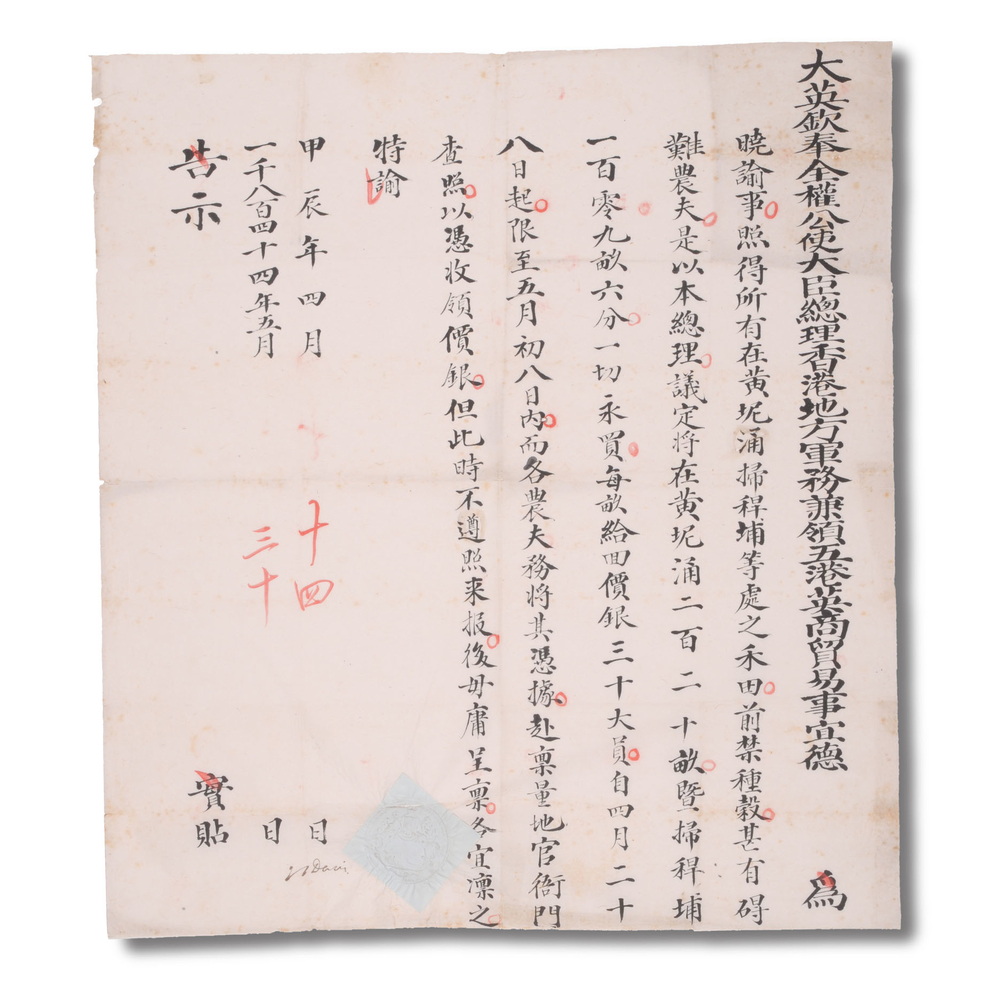 大英欽奉全權公使大臣總理香港地方軍務兼領五港英商貿易事宜德 爲
曉諭事照得所有在黃坭涌掃稈埔等處之禾田前禁種穀甚有碍
難農夫是以本總理議定將在黃坭涌二百二十畝暨掃稈埔
一百零九畝六分一切永買每畝給回價銀三十大員自四月二十
八日起限至五月初八日內而各農夫務將其憑據赴稟量地官衙門
查照以憑收領價銀但此時不遵照來报後毋庸呈稟各宜凛之
特諭
甲辰年四月 十四 日
一千八百四十四年五月 三十 日
告示 實貼